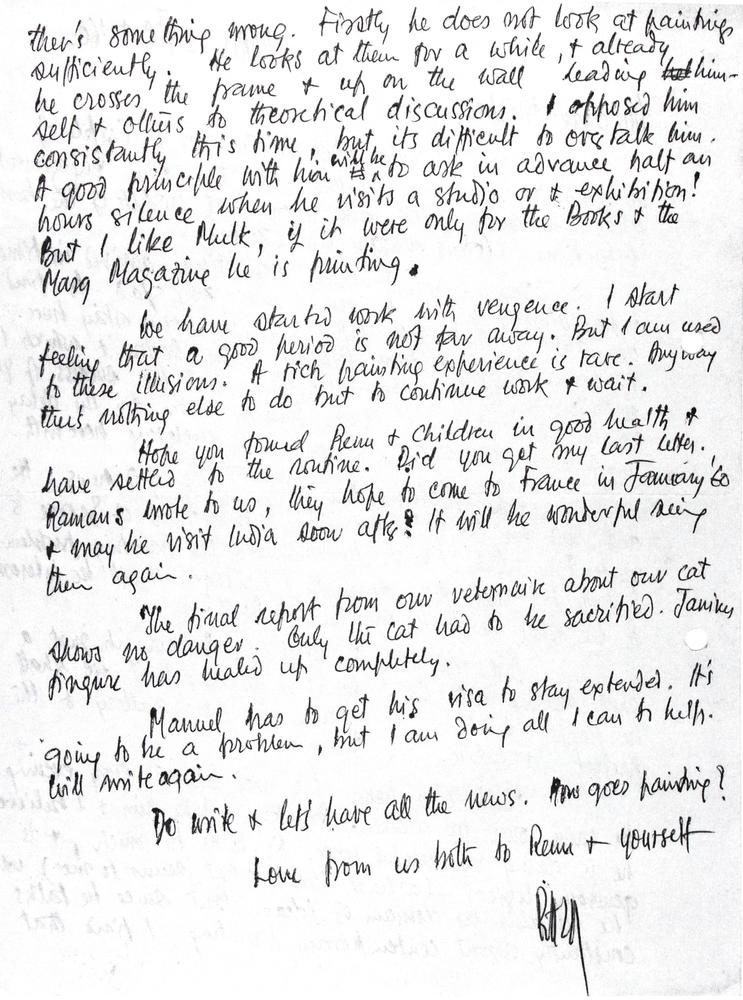 ther's something wrong. Firstly he does not look at paintings
sufficiently. He looks at them for a while, & already
he crosses the frame & up on the wall leading him-
self & others to theoretical discussions. I opposed him
consistantly this time, but, its difficult to overtalk him.
A good principle with him will be to ask in advance half an
hours silence when he visits a studio or exhibition!
But I like Mulk, if it were only for the Books & the
Marg Magazine he is printing.
We have started work with vengence. I start
feeling that a good period is not far away. But I am used
to these illusions. A rich painting experience is rare. Anyway
ther's nothing else to do but to continue work & wait.
Hope you found Renu & Children in good health &
have settled to the routine. Did you get my last letter.
Ramans wrote to us, they hope to come to France in January '60
& may be visit India soon after. It will be wonderful seing
them again.
The final report from our veternaire about our cat
shows no danger. Only the cat had to be sacrified. Janines
fingure has healed up completely.
Manuel has to get his visa to stay extended. It's
going to be a problem, but I am doing all I can to help.
Will write again.
Do write & let's have all the news. How goes painting?
Love from us both to Renu & yourself
RAZA